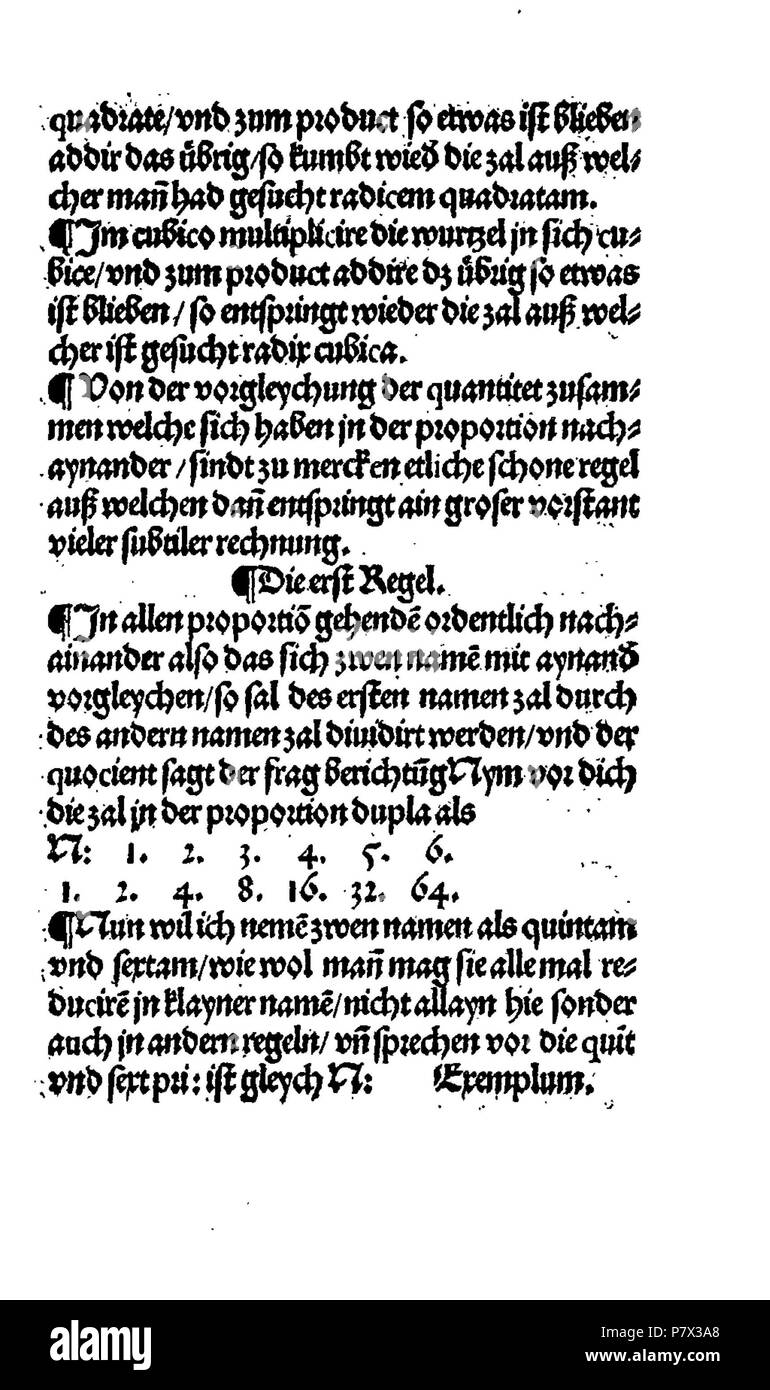 quadrate/vnd zum product so etwas ist blieben
addir das übrig/so kumbt wied̄ die zal auß wel⸗
cher man̄ had gesucht radicem quadratam.
¶ Jm cubico multiplicire die wurtzel jn sich cu⸗
bice/vnd zum product addire dz übrig so etwas
ist blieben/ so entspringt wieder die zal auß wel⸗
cher ist gesucht radix cubica.
¶ Von der vorgleychung der quantitet zusam⸗
men welche sich haben jn der proportion nach⸗
aynander/sindt zu mercken etliche schone regel
auß welchen dan̄ entspringt ain groser vorstant
vieler subtiler rechnung.
¶Die erst Regel.
¶Jn allen proportiō gehendē ordentlich nach⸗
ainander also das sich zwen namē mit aynand̄
vorgleychen/so sal des ersten namen zal durch
des andern namen zal diuidirt werden/vnd der
quocient sagt der frag berichtūg Nym vor dich
die zal jn der proportion dupla als
N: 1. 2. 3. 4. 5. 6.
1. 2. 4. 8. 16. 32. 64.
¶Nun wil ich nemē zwen namen als quintam
vnd sextam/wie wol man̄ mag sie alle mal re⸗
ducirē jn klayner namē/nicht allayn hie sonder
auch jn andern regeln/ vn̄ sprechen vor die quīt
vnd sext pri: ist gleych N: Exemplum.
alamy
Image ID: P7X3A8
www.alamy.com